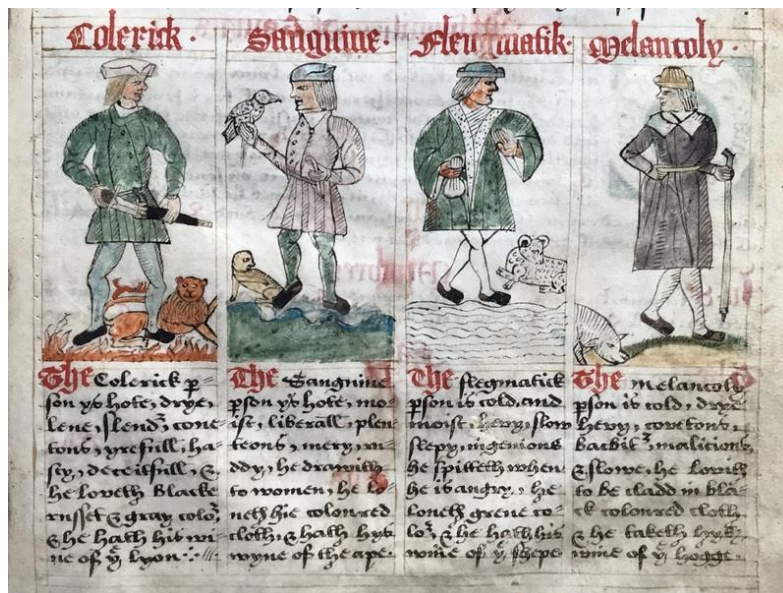 Colerick · Sanguine · Fleugmatik · Melancoly ·
The Colerick p
son ys hote, drye,
lene, slend, cove
tous, yrefull, ha
sty, deceitfull, &
he loveth Blacke
russet & gray colo
& he hath his wi
ne of yͤ Lyon
The Sanguine
pson ys hote, mo
ist, liberall, plen
teous, mery, ru
ddy, he drawith
to women, he lo
veth hie coloured
cloth, & hath hys
wyne of the ape
The flegmatick
pson is cold, and
moist, hevy, slow
slepy, ingenious
he spitteth when
he is angry, he
loveth grene co
lo, & he hath his
wine of yͤ shepe
The melancoly
pson is cold, drye
hevy, covetous,
backbit, malicious
& slowe, he lovith
to be cladd in bla
ck coloured cloth
& he taketh hys
wine of yͤ hogge